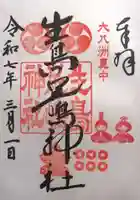 奉拝
大八洲霊中
生島足嶋神社
生島
神社
令和七年 三月一日